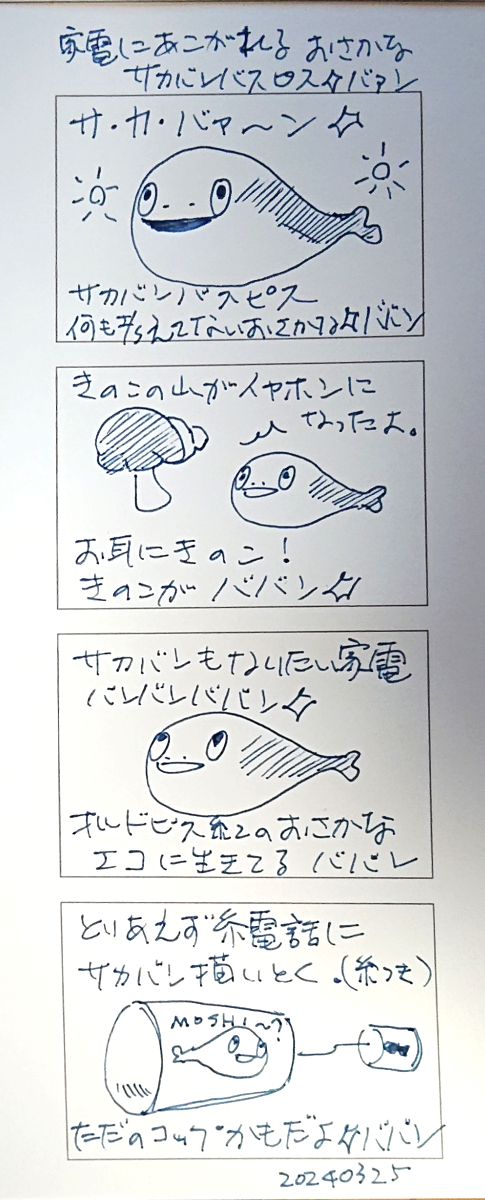 家電にあこがれる おさかな
サカバンバスピス☆バァン
サ・カ・バァ〜ン☆
サカバンバスピス
何も考えてないおさかな☆ババン
きのこの山がイヤホンに
なったよ。
お耳にきのこ!
きのこが ババン☆
サカバンもなりたい家電
バンバンババン☆
オルドビス紀のおさかな
エコに生きてる ババン
とりあえず糸電話に
サカバン描いとく.(糸つき)
MOSHI〜?
ただのコップかもだよ☆ババン
20240325